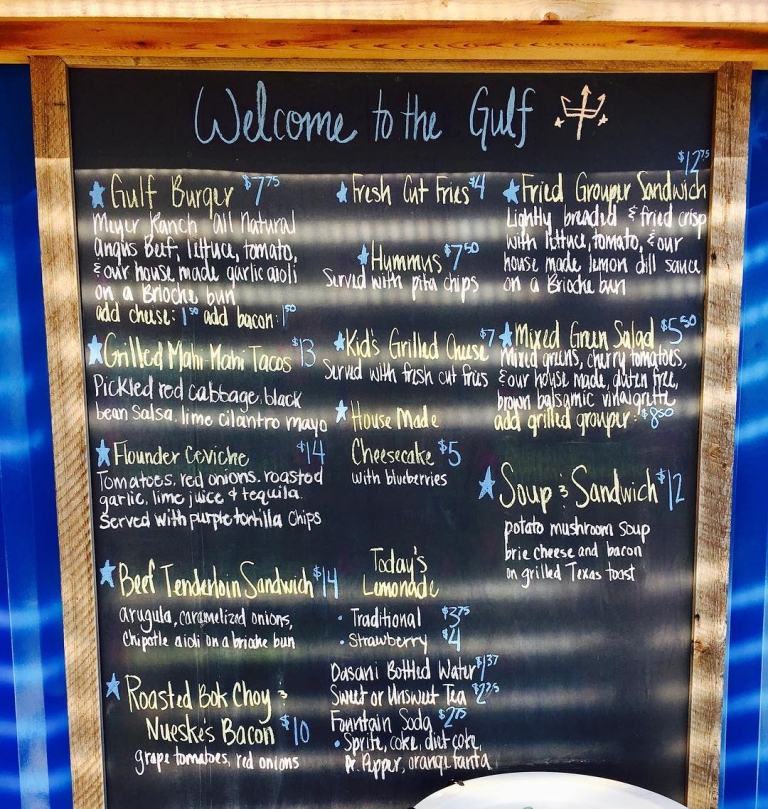 Welcome to the Gulf
★ Gulf Burger $7.75
Meyer Ranch all natural
angus beef, lettuce, tomato,
& our house made garlic aioli
on a Brioche bun
add cheese: 1.50 add bacon: 1.50
★ Grilled Mahi-Mahi Tacos $13
Pickled red cabbage, black
bean salsa, lime cilantro mayo
★ Flounder Ceviche $14
Tomatoes, red onions, roasted
garlic, lime juice & tequila.
Served with purple tortilla chips
★ Beef Tenderloin Sandwich $14
arugula, caramelized onions,
chipotle aioli on a brioche bun
★ Roasted Bok Choy &
Nueske's Bacon $10
grape tomatoes, red onions
★ Fresh Cut Fries $4
★ Hummus $7.50
Served with pita chips
★ Kid's Grilled Cheese $7
Served with fresh cut fries
★ House Made
Cheesecake $5
with blueberries
Today's
Lemonade
• Traditional $3.75
• Strawberry $4
Dasani Bottled Water $1.37
Sweet or Unsweet Tea $2.25
Fountain Soda $2.75
• Sprite, coke, diet coke,
Dr. Pepper, orange fanta
$12.75
★ Fried Grouper Sandwich
Lightly breaded & fried crisp
with lettuce, tomato, & our
house made lemon dill sauce
on a Brioche bun
★ Mixed Green Salad $5.50
Mixed greens, cherry tomatoes,
& our house made, gluten free,
brown balsamic vinaigrette
add grilled grouper: $8.50
★ Soup & Sandwich $12
potato mushroom soup
brie cheese and bacon
on grilled Texas toast